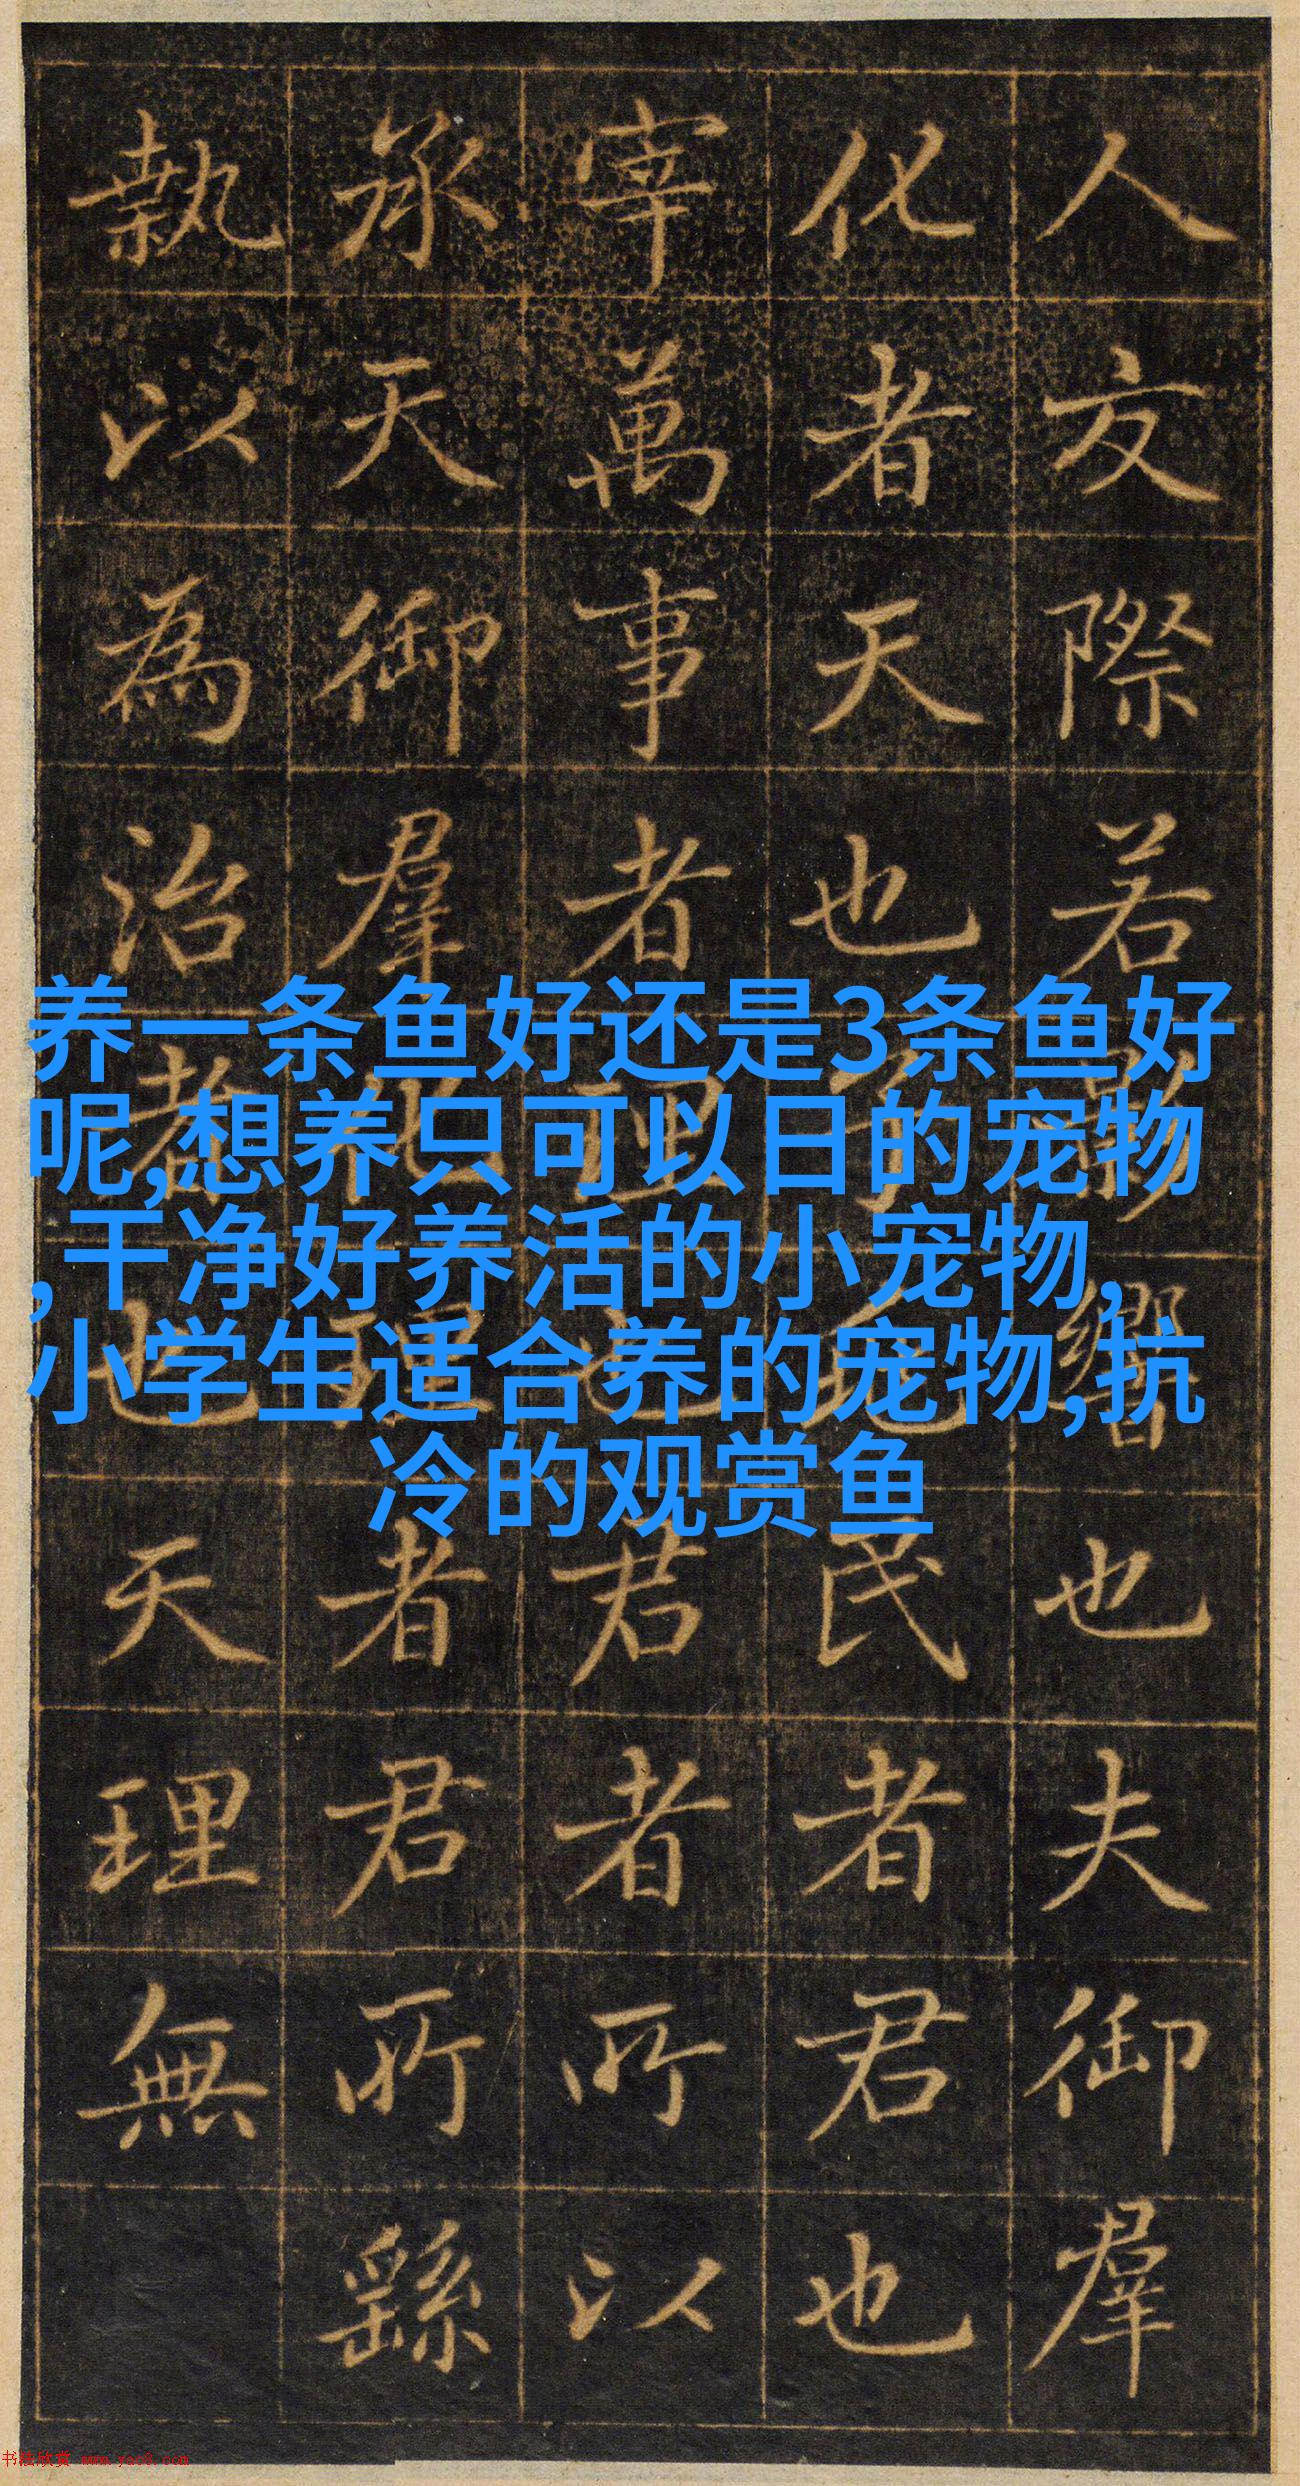 人友際若影響也夫御羣
化者天也子兆民者君也
宰萬事者理也君者所以
承天御羣化理者君所繇
執以為治者也天理無
养一条鱼好还是3条鱼好
呢,想养只可以日的宠物
,干净好养活的小宠物,
小学生适合养的宠物,抗
冷的观赏鱼
书法欣赏 www.yac8.com